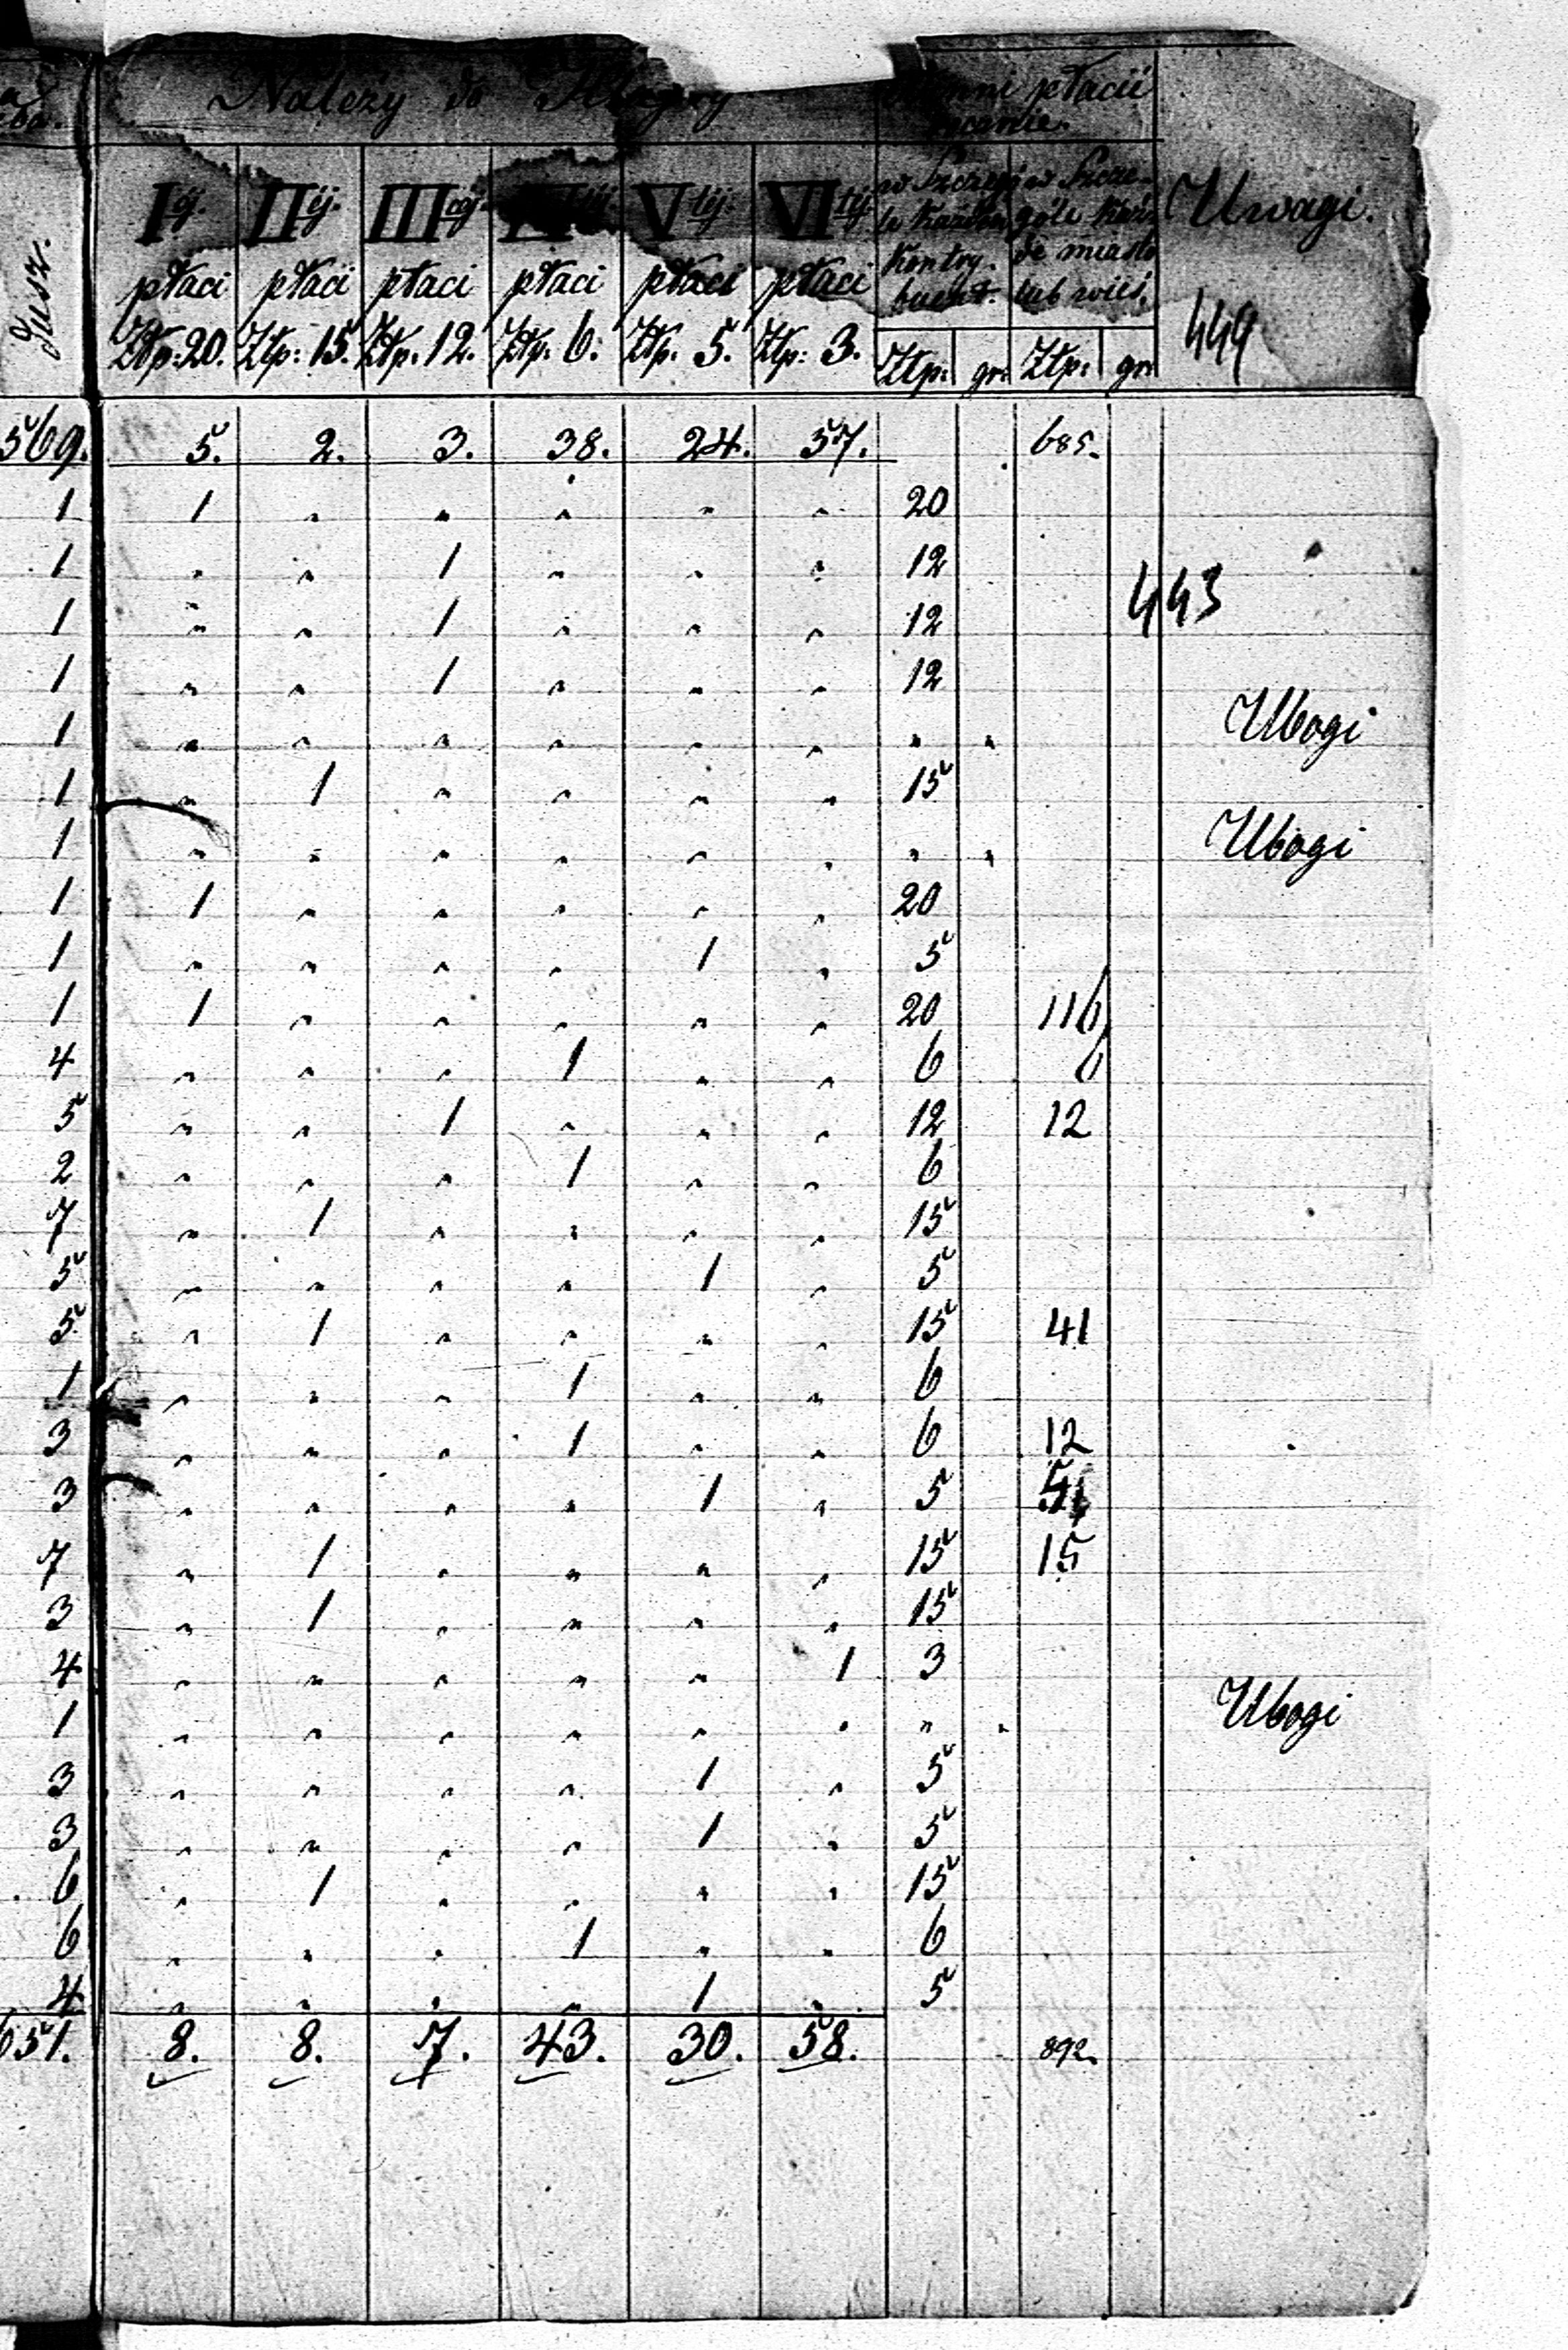 Należy do Klassy
płacić
rocznie.
Iéj. IIéj. IIIcéj. Vtéj. VItéj. w Szczegó w Szcze- Uwagi.
le każden góle każ-
Kontry- de miasto
buent. lub wieś.
Dusz.
płaci płaci płaci płaci płaci płaci
Złtp: 20. Złtp: 15. Złtp: 12. Złtp: 6. Złtp: 5. Złtp: 3.
449
Złtp: gr. Złtp: gr.
569. 5. 2. 3. 38. 24. 57. 685.
1 1 „ „ „ „ „ 20
1 „ „ 1 „ „ „ 12
1 „ „ 1 „ „ „ 12 443
1 „ „ 1 „ „ „ 12
1 „ „ „ „ „ „ „ „ Ubogi
1 „ 1 „ „ „ „ 15
1 „ „ „ „ „ „ „ „ Ubogi
1 1 „ „ „ „ „ 20
1 „ „ „ „ 1 „ 5
1 1 „ „ „ „ „ 20 116
4 „ „ „ 1 „ „ 6 6
5 „ „ 1 „ „ „ 12 12
2 „ „ „ 1 „ „ 6
7 „ 1 „ „ „ „ 15
5 „ „ „ „ 1 „ 5
5 „ 1 „ „ „ „ 15 41
1 „ „ „ 1 „ „ 6
3 „ „ „ 1 „ „ 6 12
3 „ „ „ „ 1 „ 5
7 „ 1 „ „ „ „ 15 15
3 „ 1 „ „ „ „ 15
4 „ „ „ „ „ 1 3
1 „ „ „ „ „ „ „ „ Ubogi
3 „ „ „ „ 1 „ 5
3 „ „ „ „ 1 „ 5
6 „ 1 „ „ „ „ 15
6 „ „ „ 1 „ „ 6
4 „ „ „ „ 1 „ 5
651. 8. 8. 7. 43. 30. 58. 892.